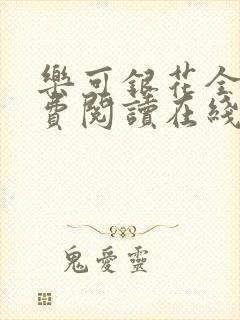 樂可銀花全
費閱讀在綫
鬼愛靈